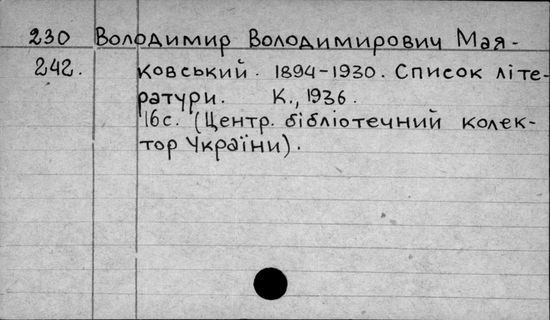 230 Володимир Володимирович Мая-
242. ковський. 1894-1930. Список літе-
ратури. К., 1936.
16с. (Центр. бібліотечний колек-
тор України).